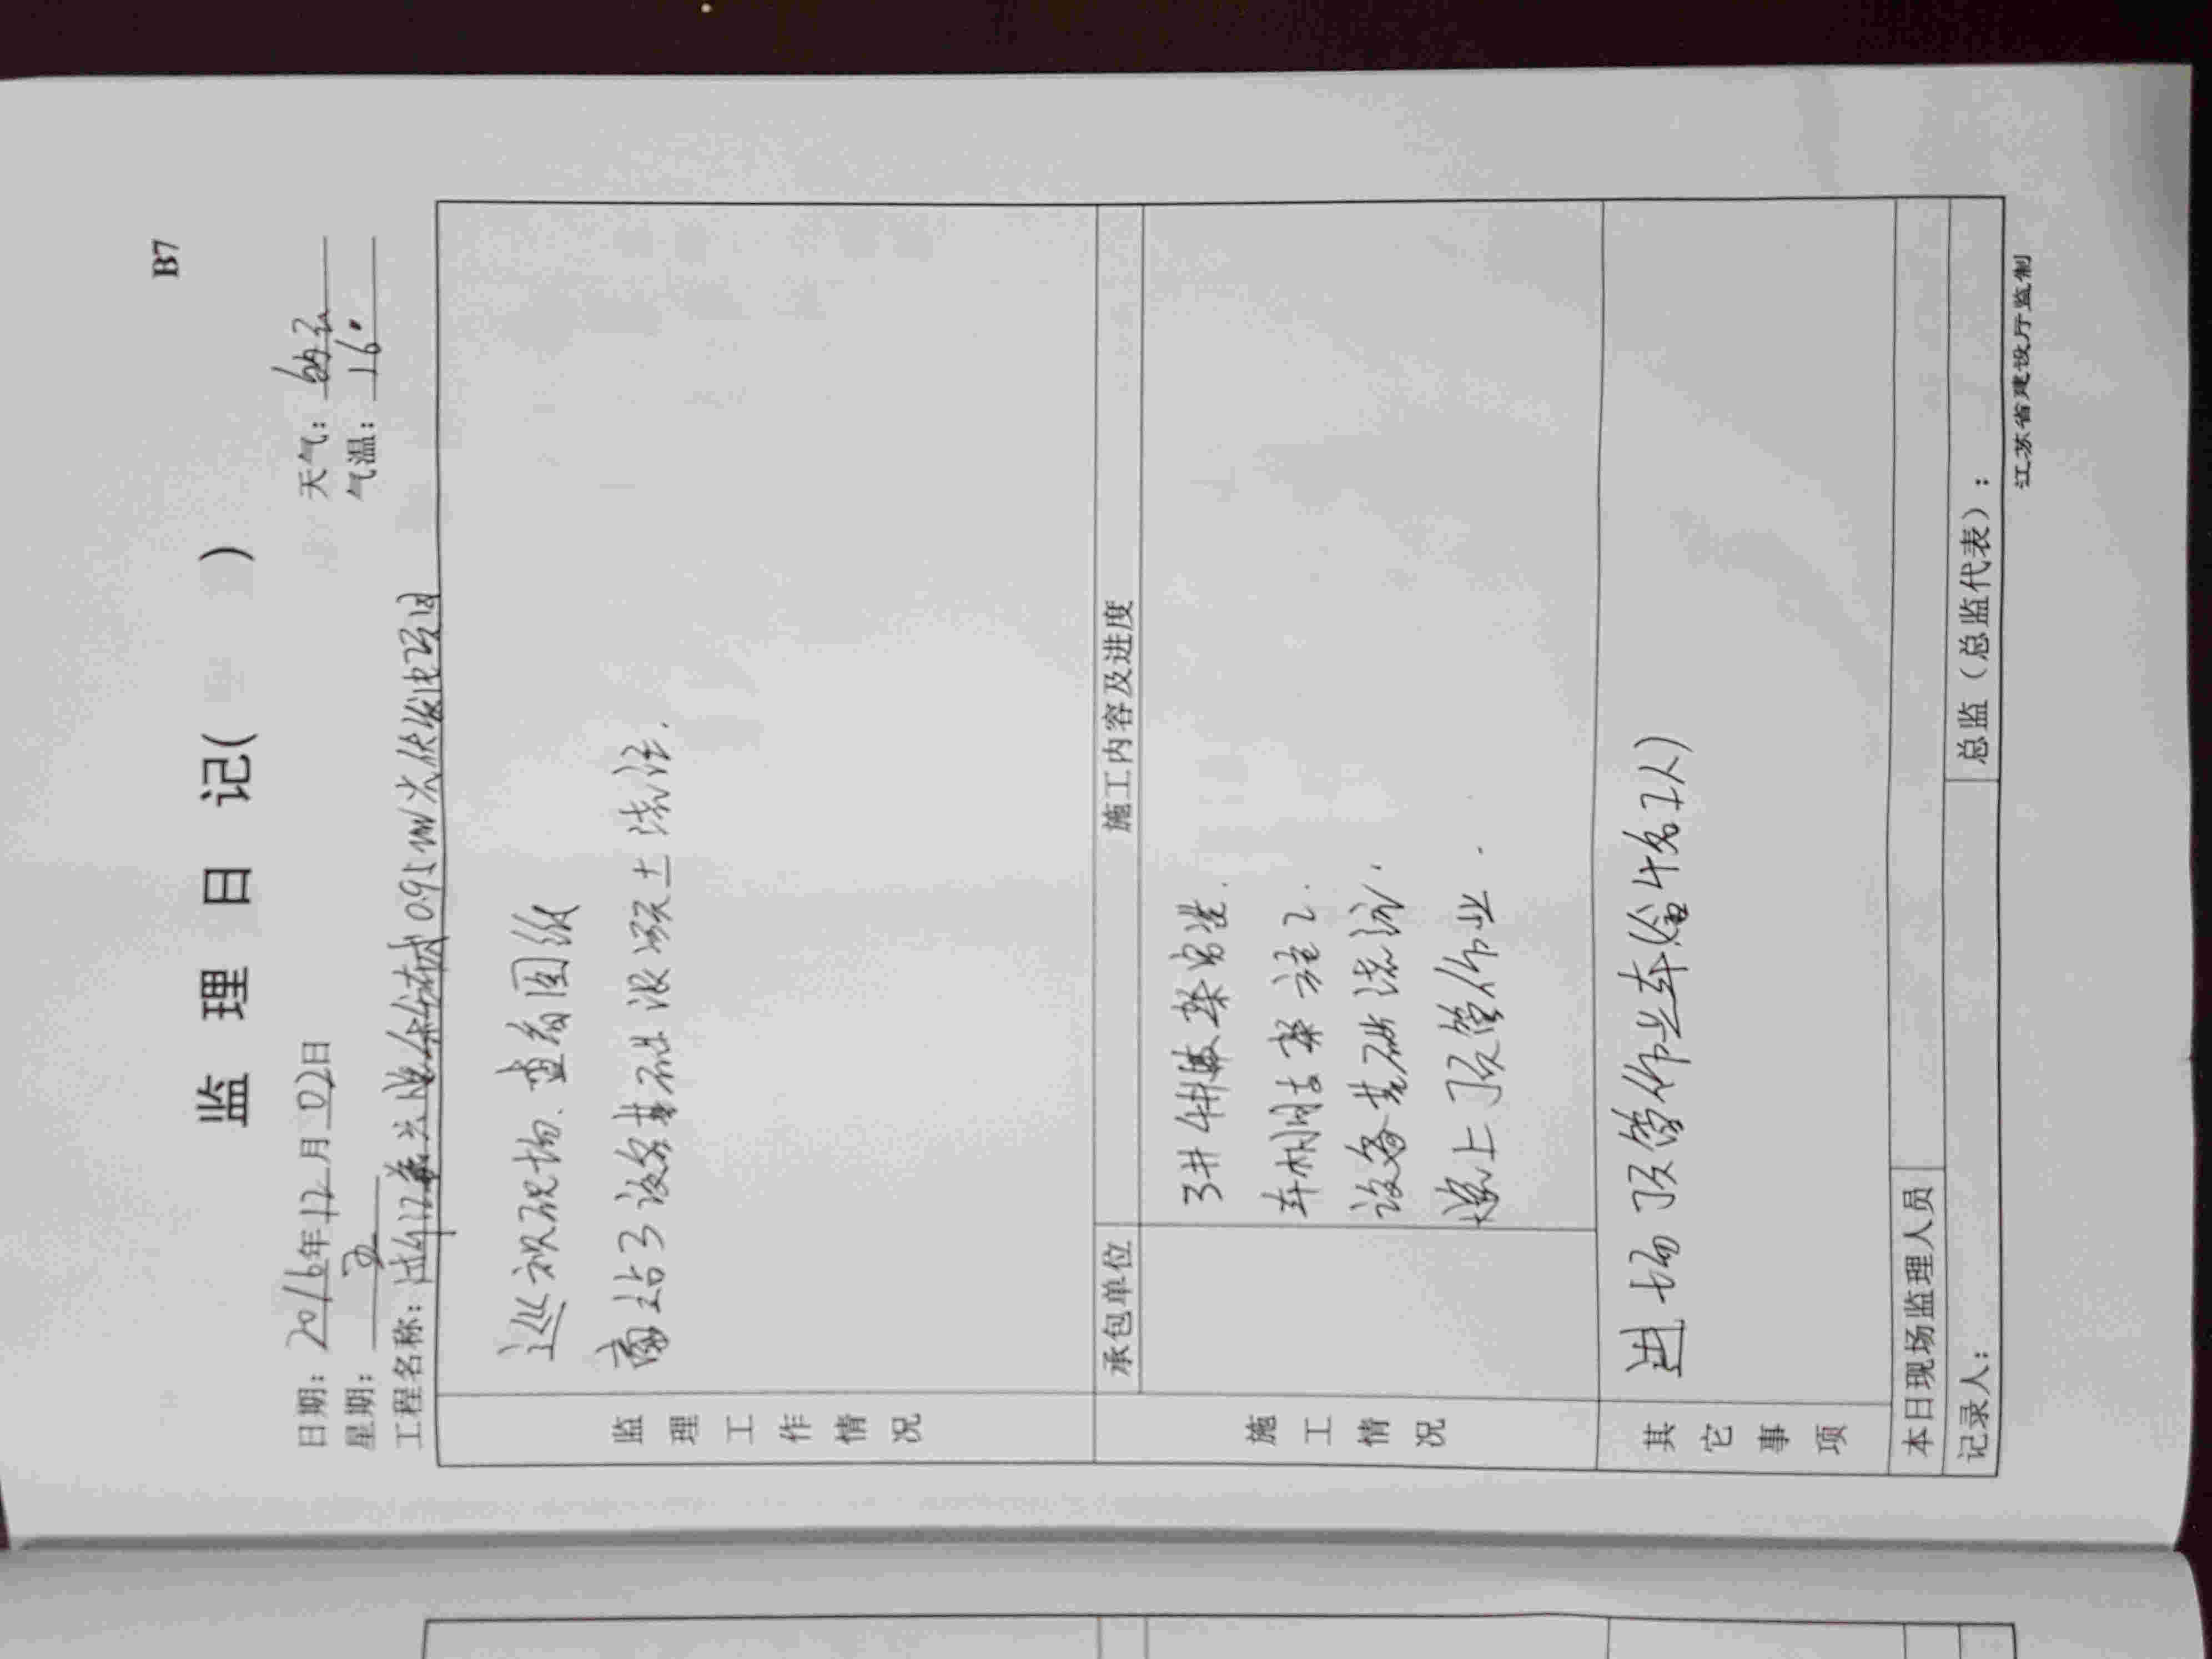 B7
监 理 日 记( )
日期: 2016年12月02日 天气: 多云
星期: 五 气温: 16°
工程名称: 0.95MW光伏发电项目
巡视现场.查看图纸
旁站了设备基础混凝土浇注.
承包单位 施工内容及进度
3# 4#
设备基础浇筑.
晚上顶管作业.
进场顶管作业车(含4名工人)
监理工作情况
施工情况
其它事项
本日现场监理人员
记录人: 总监(总监代表):
江苏省建设厅监制